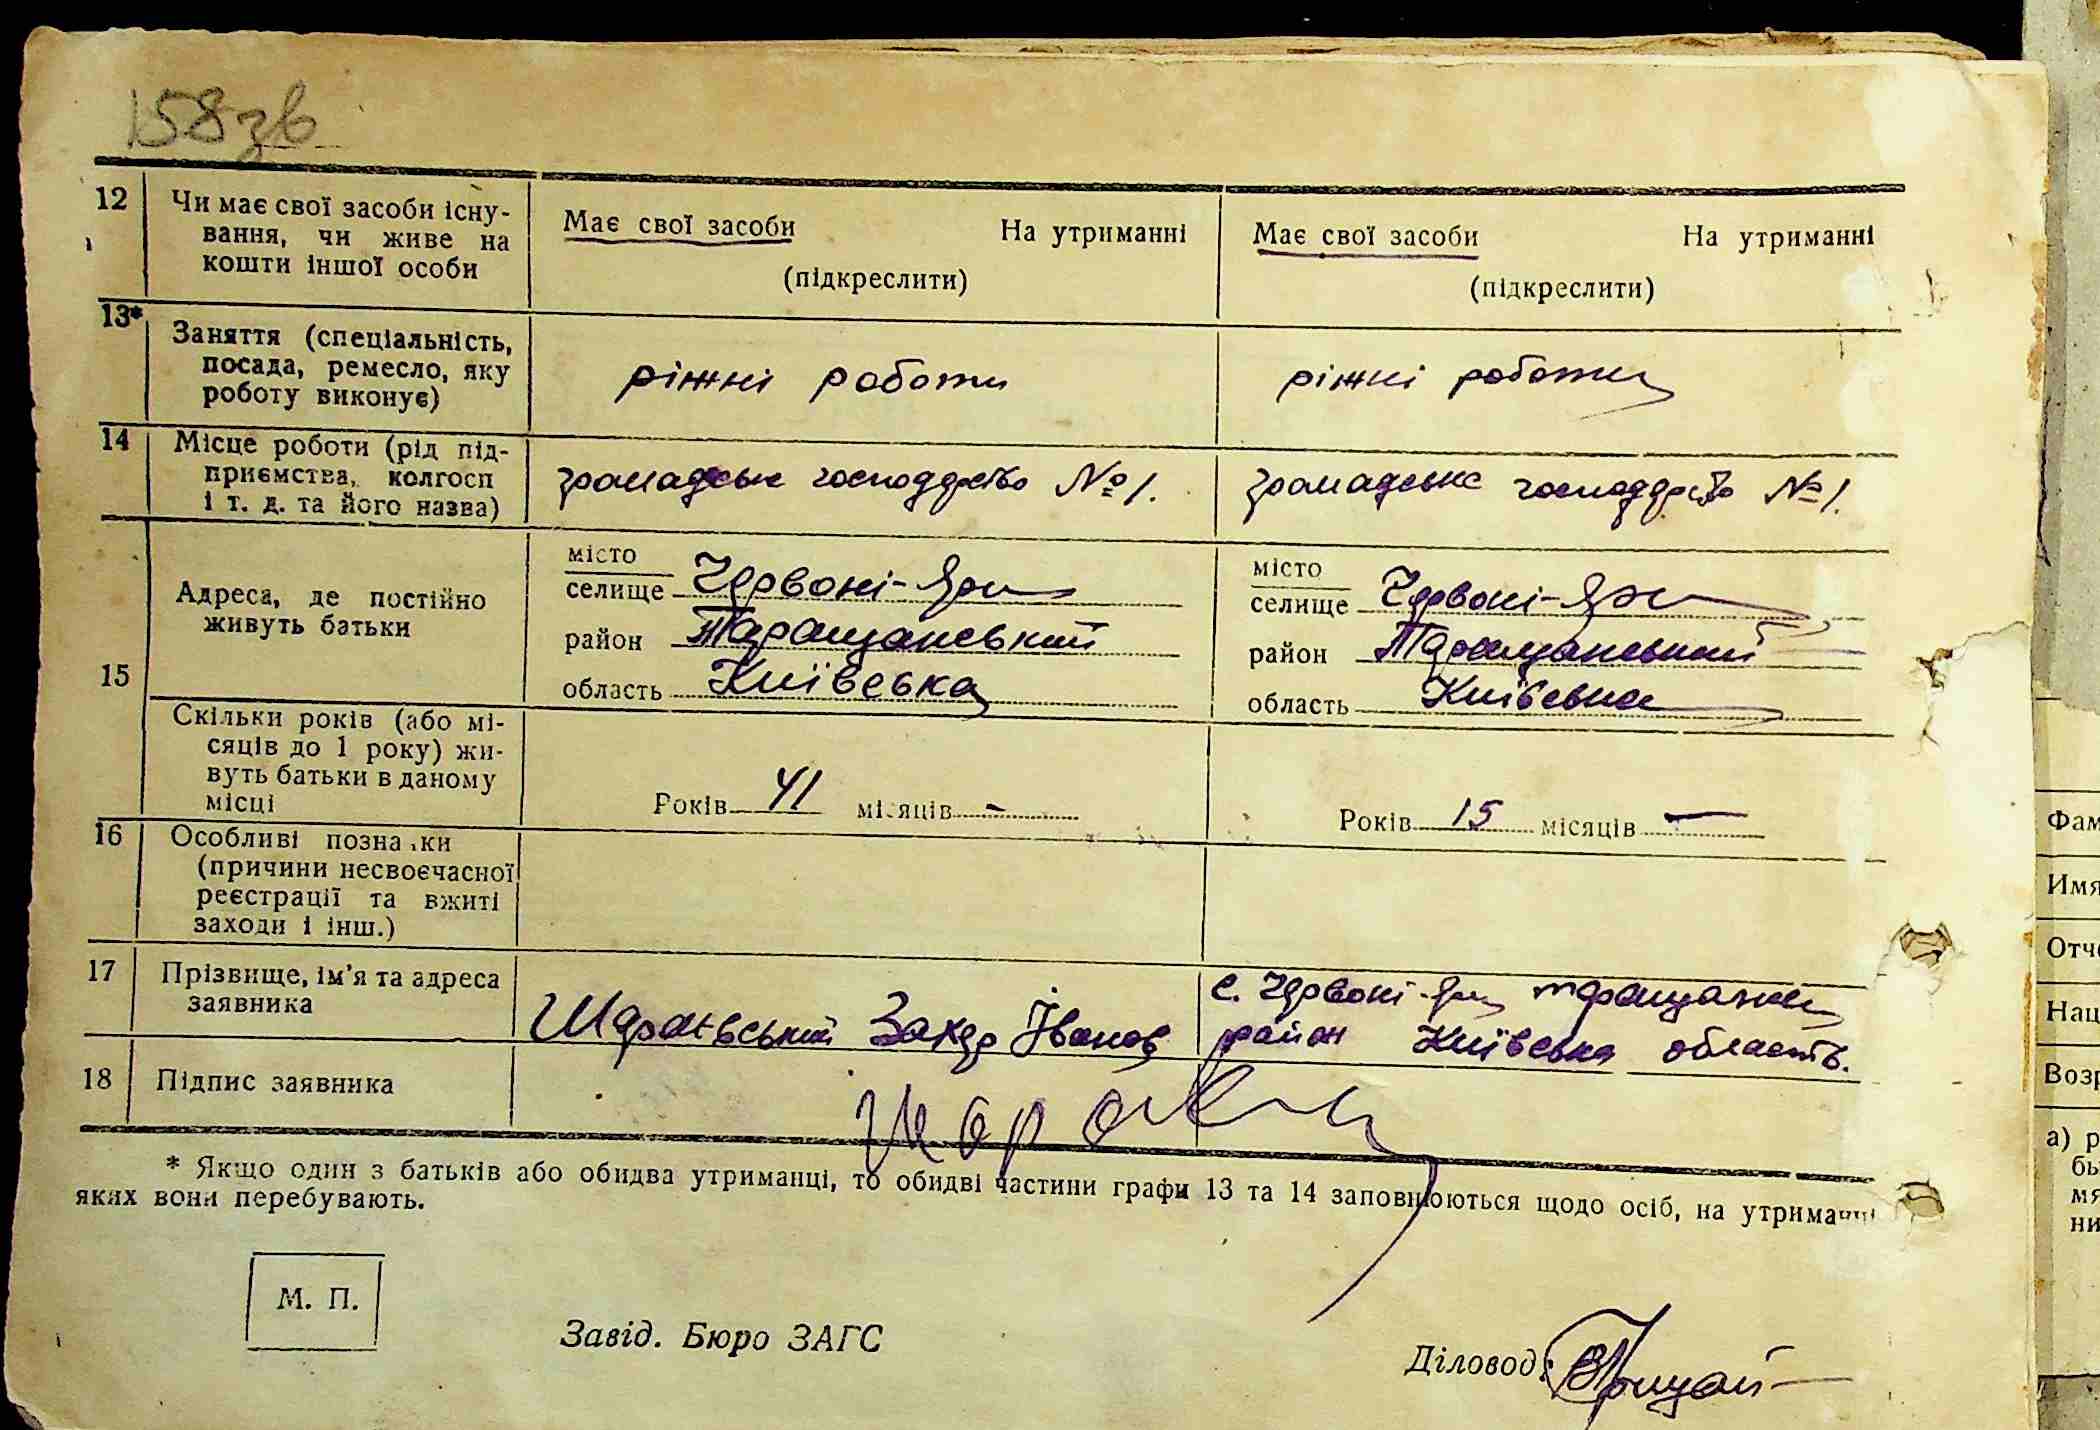 158зв
12 Чи має свої засоби існу-
вання, чи живе на
кошти іншої особи
Має свої засоби На утриманні
(підкреслити)
Має свої засоби На утриманні
(підкреслити)
13* Заняття (спеціальність,
посада, ремесло, яку
роботу виконує)
ріжні роботи
ріжні роботи
14 Місце роботи (рід під-
приємства, колгосп
і т. д. та його назва)
громадське господарство № 1.
громадське господарство № 1.
15 Адреса, де постійно
живуть батьки
місто
селище Червоні-Яри
район Таращанський
область Київська
місто
селище Червоні-Яри
район Таращанський
область Київська
Скільки років (або мі-
сяців до 1 року) жи-
вуть батьки в даному
місці
Років 41 місяців -
Років 15 місяців —
16 Особливі позна.ки
(причини несвоєчасної
реєстрації та вжиті
заходи і інш.)
17 Прізвище, ім'я та адреса
заявника
Шараєвський Захар Іванов
с. Червоні-Яри Таращанськ
район Київська область.
18 Підпис заявника
* Якщо один з батьків або обидва утриманці, то обидві частини графи 13 та 14 заповнюються щодо осіб, на утриманні
яких вони перебувають.
М. П.
Завід. Бюро ЗАГС
Діловод:
Фам
Имя
Отч
Нац
Возр
а) р
бы
мя
ни